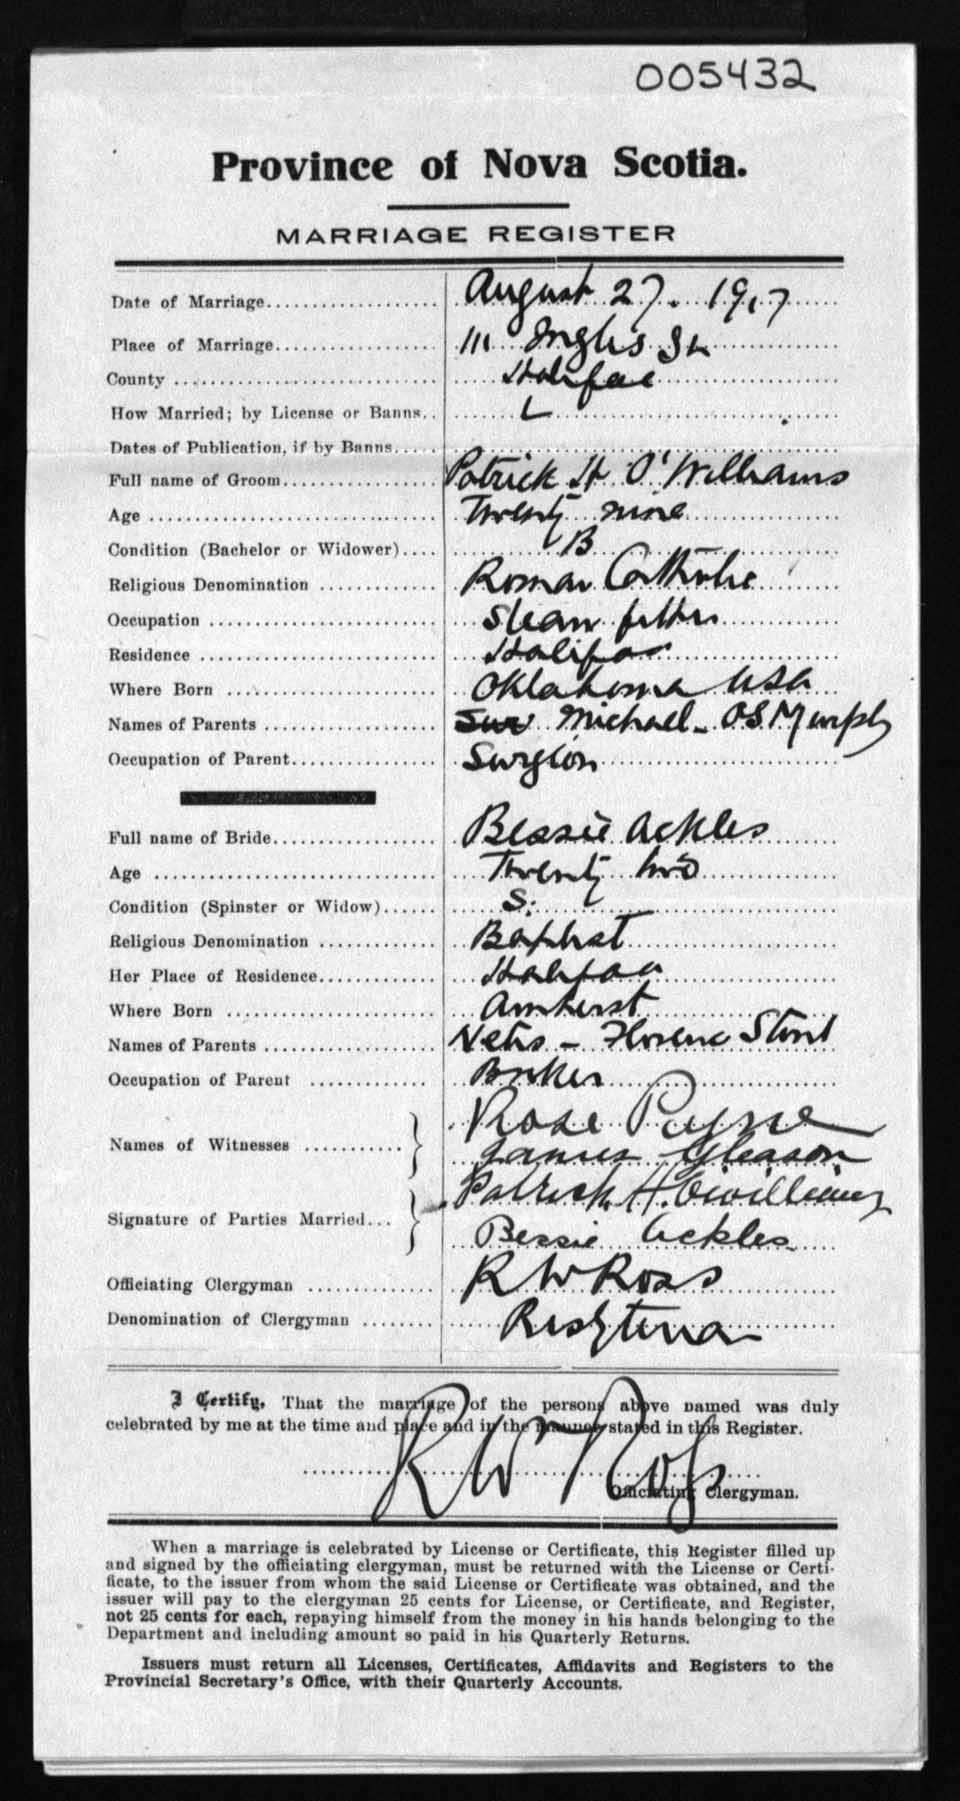 005432
Province of Nova Scotia.
MARRIAGE REGISTER
Date of Marriage. August 27. 1917
Place of Marriage. 111 Inglis St
County Halifax
How Married; by License or Banns. L
Dates of Publication, if by Banns.
Full name of Groom. Patrick H O'Williams
Age Twenty nine
Condition (Bachelor or Widower) B
Religious Denomination Roman Catholic
Occupation Steam fitter
Residence Halifax
Where Born Oklahoma USA
Names of Parents Michael - Murphy
Occupation of Parent. Surgeon
Full name of Bride. Bessie Ackles
Age Twenty two
Condition (Spinster or Widow) S.
Religious Denomination Baptist
Her Place of Residence. Halifax
Where Born Amherst
Names of Parents - Florence
Occupation of Parent
Names of Witnesses Rose Payne
James Gleason
Signature of Parties Married. Patrick H. Owilliams
Bessie Ackles
Officiating Clergyman R W Ross
Denomination of Clergyman Presbyterian
I Certify, That the marriage of the persons above named was duly
celebrated by me at the time and place and in the manner stated in this Register.
R W Ross
Officiating Clergyman.
When a marriage is celebrated by License or Certificate, this Register filled up
and signed by the officiating clergyman, must be returned with the License or Certi-
ficate, to the issuer from whom the said License or Certificate was obtained, and the
issuer will pay to the clergyman 25 cents for License, or Certificate, and Register,
not 25 cents for each, repaying himself from the money in his hands belonging to the
Department and including amount so paid in his Quarterly Returns.
Issuers must return all Licenses, Certificates, Affidavits and Registers to the
Provincial Secretary's Office, with their Quarterly Accounts.